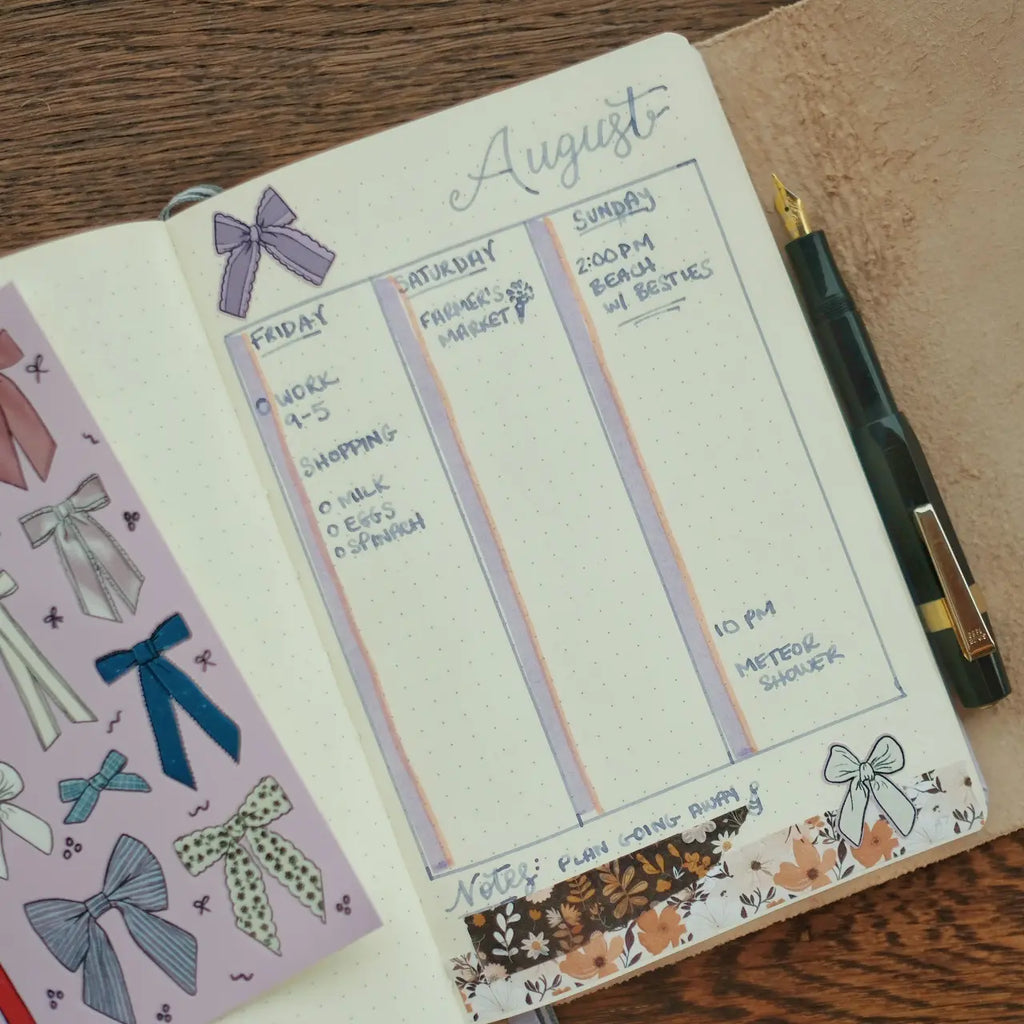 August
FRIDAY
O WORK
9-5
SHOPPING
O MILK
O EGGS
O SPINACH
SATURDAY
FARMER'S
MARKET
SUNDAY
2:00PM
BEACH
W/ BESTIES
10 PM
METEOR
SHOWER
Notes: PLAN GOING AWAY